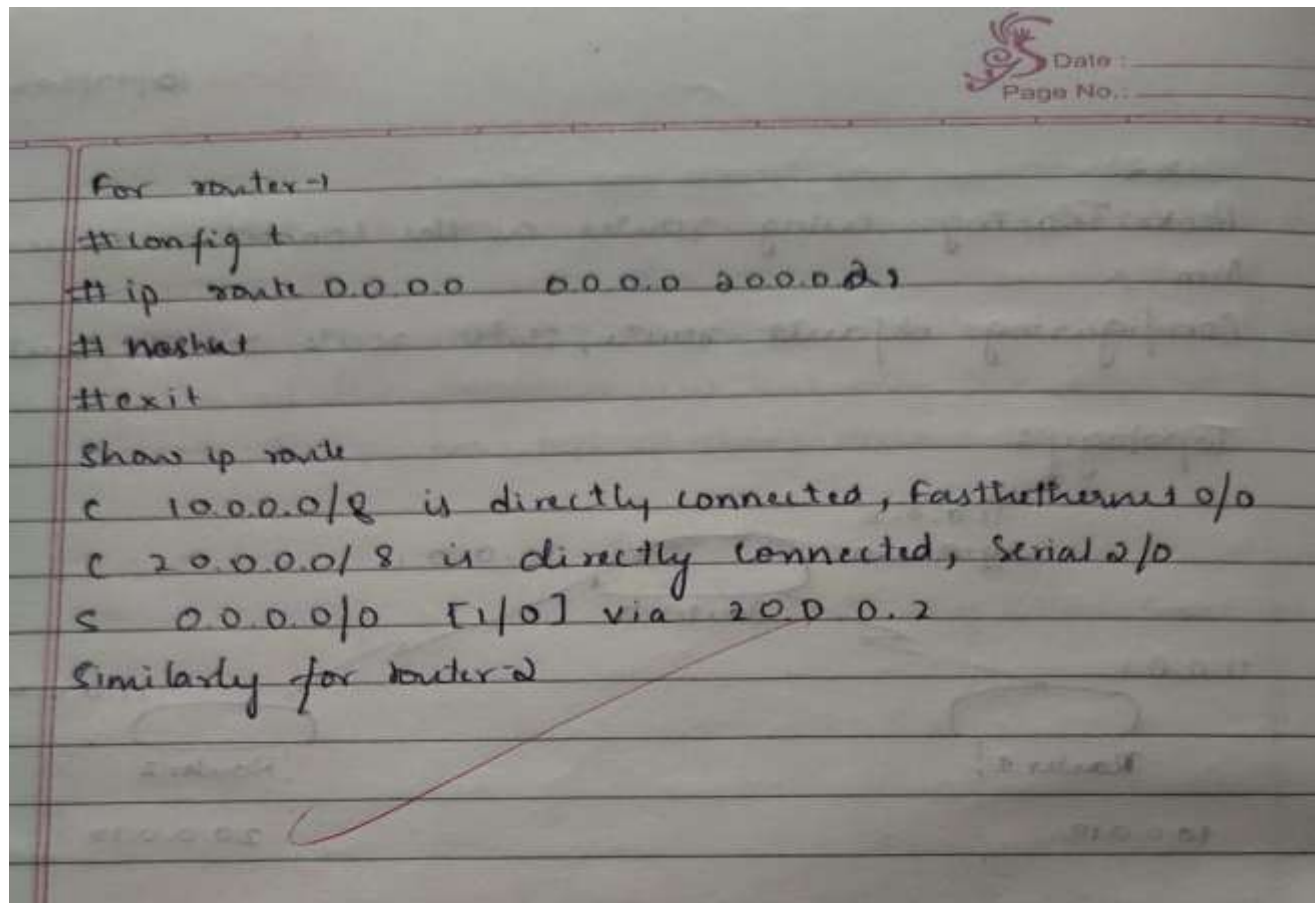 Date :
Page No.:
For router-1
#config t
# ip route 0.0.0.0 0.0.0.0 20.0.0.2
# noshut
#exit
Show ip route
C 10.0.0.0/8 is directly connected, Fasthethernet 0/0
C 20.0.0.0/8 is directly connected, Serial 2/0
S 0.0.0.0/0 [1/0] via 20.0.0.2
Similarly for router-2